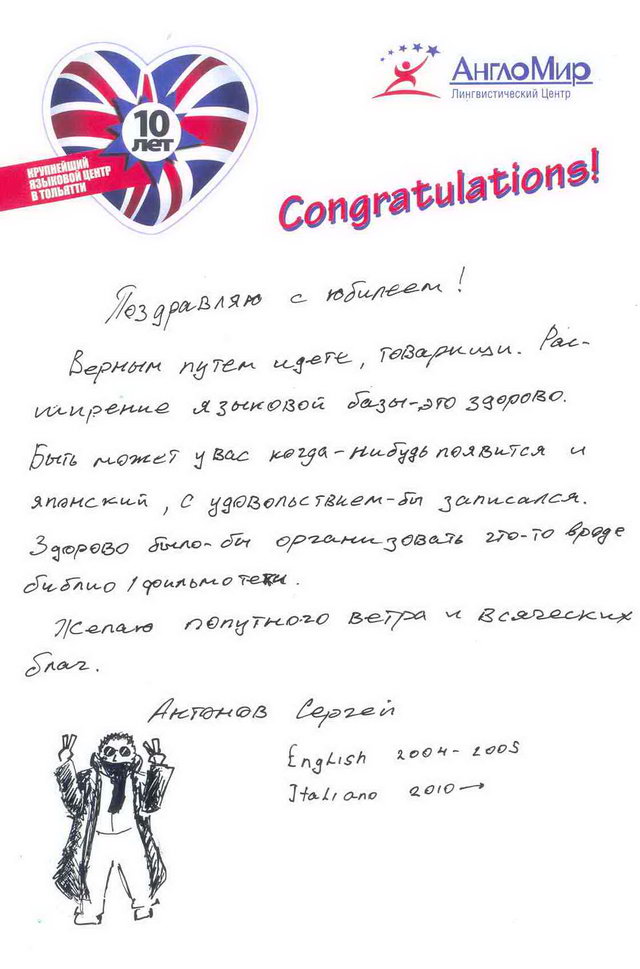 10
лет
КРУПНЕЙШИЙ
ЯЗЫКОВОЙ ЦЕНТР
В ТОЛЬЯТТИ
АнглоМир
Лингвистический Центр
Congratulations!
Поздравляю с юбилеем!
Верным путем идете, товарищи. Рас-
ширение языковой базы-это здорово.
Быть может у вас когда-нибудь появится и
японский, с удовольствием-бы записался.
Здорово было-бы организовать что-то вроде
библио/фильмотеки.
Желаю попутного ветра и всяческих
благ.
Антонов Сергей
English 2004-2005
Italiano 2010→